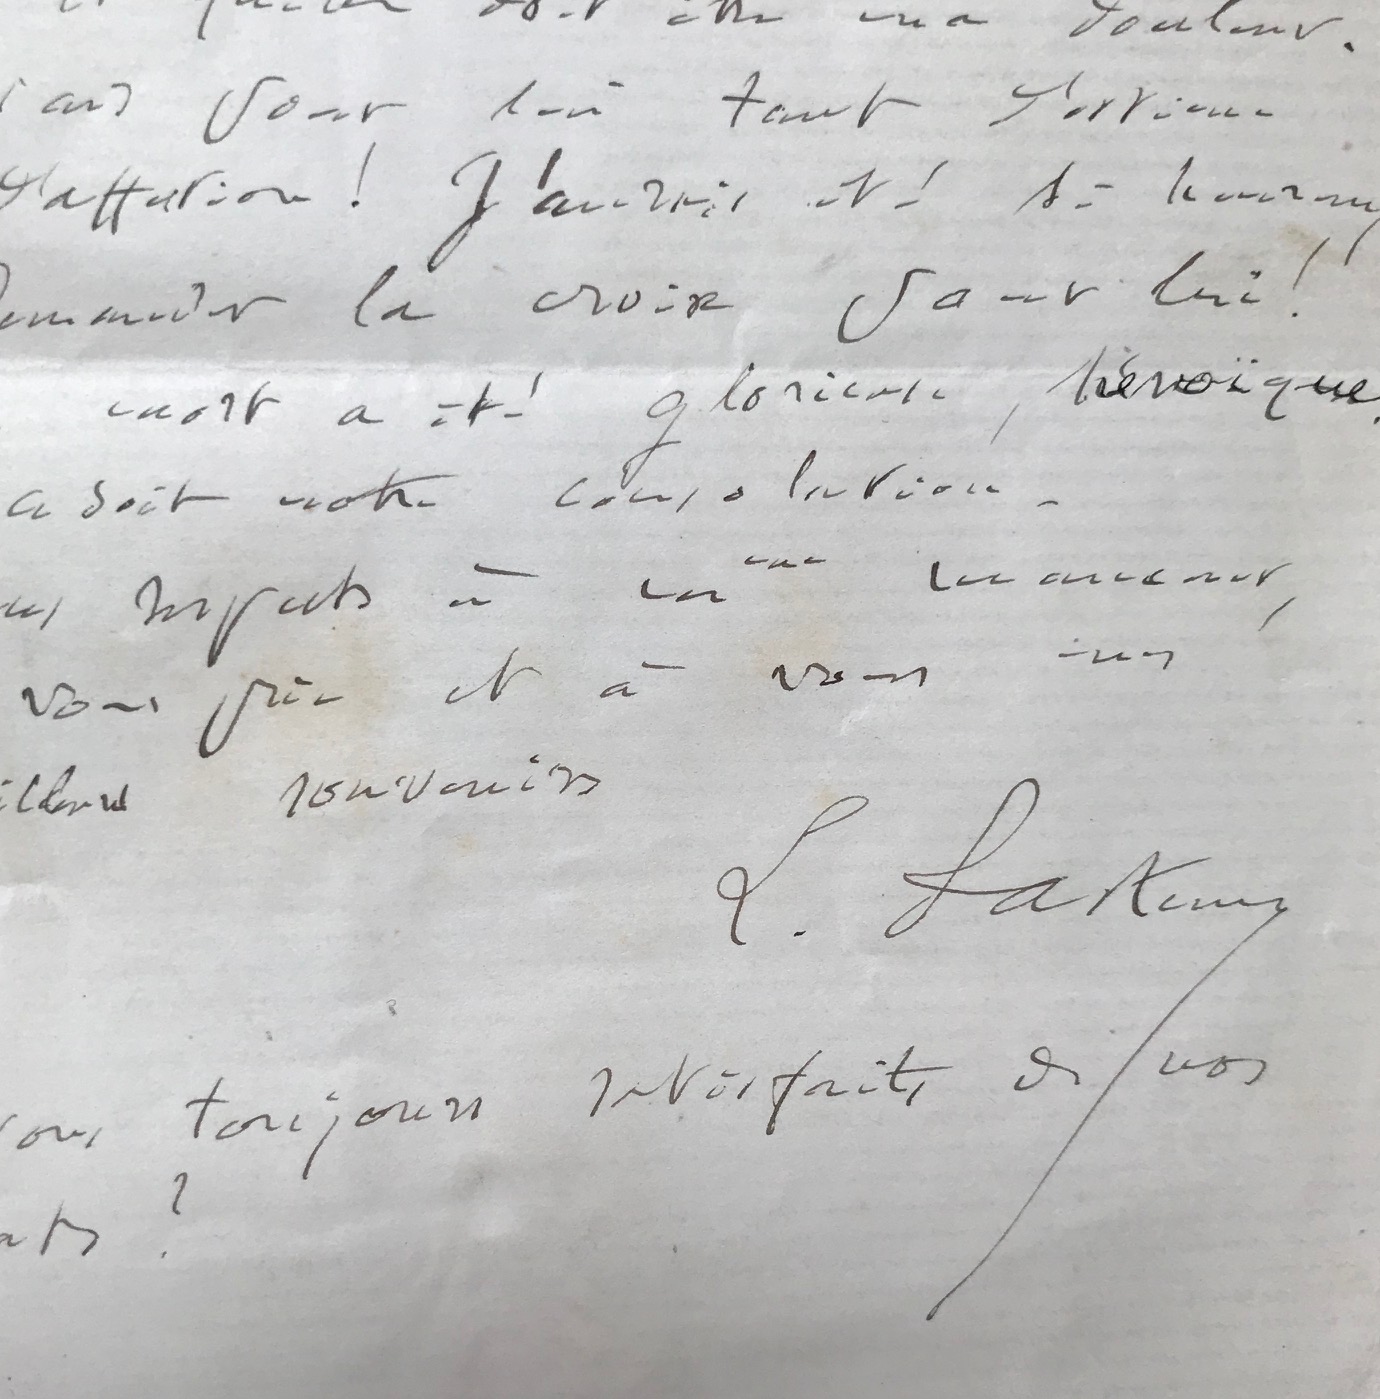 quelle doit être ma douleur.
pour lui tant d'estime
d'affection ! J'aurais été si heureux
demander la croix pour lui !
mort a été glorieuse, héroïque.
soit notre consolation.
respects à
vous prie et à vous mes
meilleurs souvenirs
L.
toujours satisfaits de vos
?